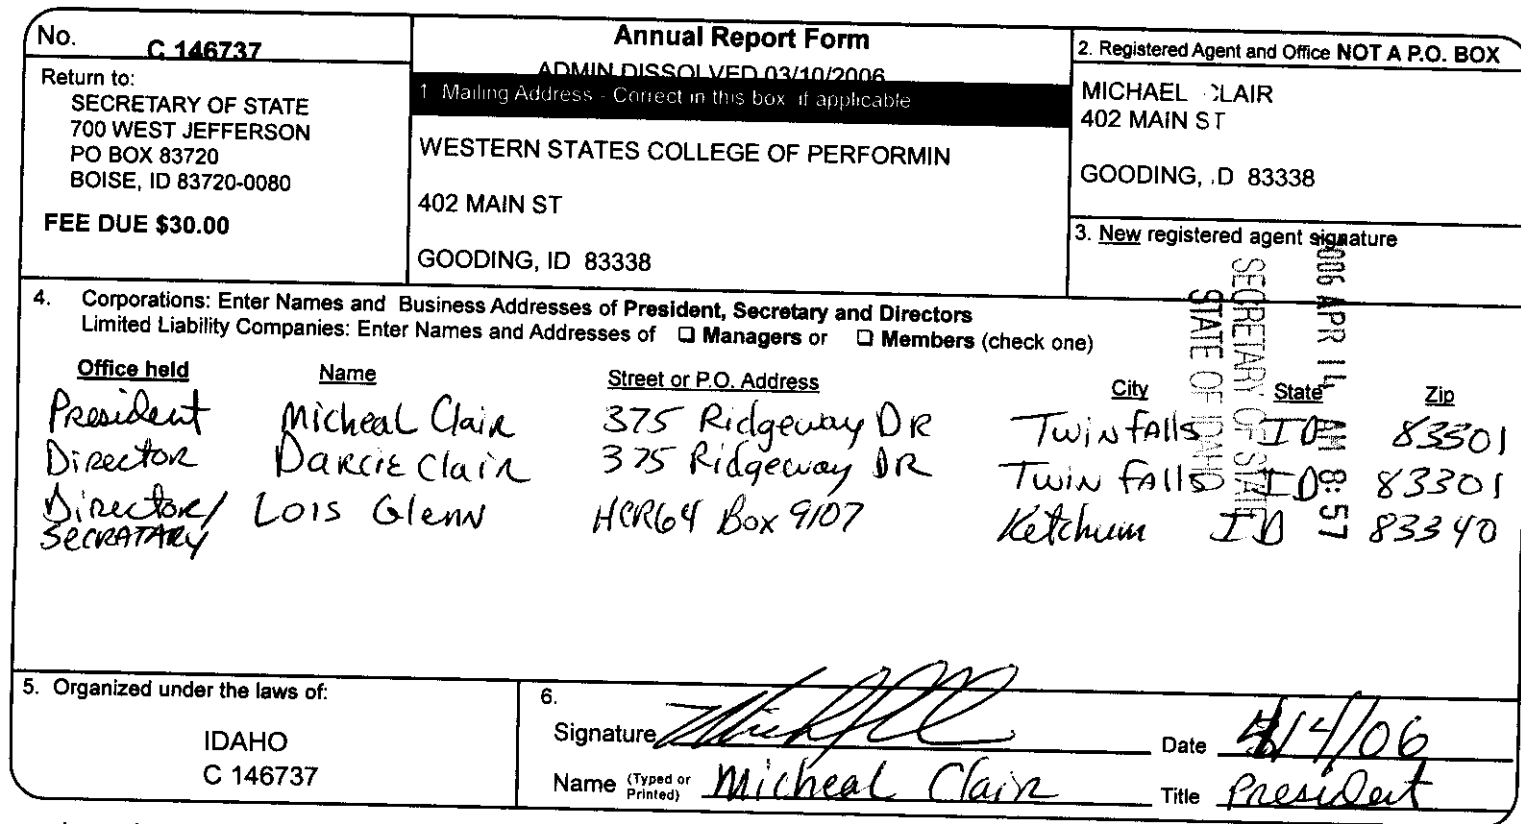 No. C 146737
Return to:
SECRETARY OF STATE
700 WEST JEFFERSON
PO BOX 83720
BOISE, ID 83720-0080
FEE DUE $30.00
Annual Report Form
ADMIN DISSOLVED 03/10/2006
1 Mailing Address - Correct in this box if applicable
WESTERN STATES COLLEGE OF PERFORMIN
402 MAIN ST
GOODING, ID 83338
2. Registered Agent and Office NOT A P.O. BOX
MICHAEL CLAIR
402 MAIN ST
GOODING, ID 83338
3. New registered agent signature
2006 APR 14 AM 8:57
SECRETARY OF STATE
STATE OF IDAHO
4. Corporations: Enter Names and Business Addresses of President, Secretary and Directors
Limited Liability Companies: Enter Names and Addresses of ❑ Managers or ❑ Members (check one)
Office held Name Street or P.O. Address City State Zip
President Micheal Clair 375 Ridgeway DR Twin falls ID 83301
Director Darcie Clair 375 Ridgeway DR Twin falls ID 83301
Director/ Lois Glenn HCR64 Box 9107 Ketchum ID 83340
SECRATARY
5. Organized under the laws of:
IDAHO
C 146737
6.
Signature Date 4/14/06
Name (Typed or Printed) Micheal Clair Title President